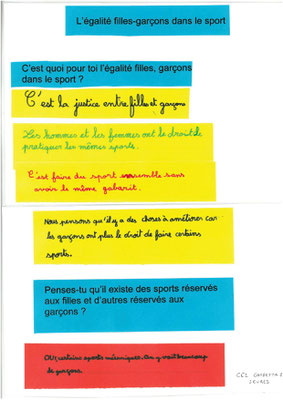 L'égalité filles-garçons dans le sport
C'est quoi pour toi l'égalité filles, garçons
dans le sport ?
C'est la justice entre filles et garçons
Les hommes et les femmes ont le droit de
pratiquer les mêmes sports.
C'est faire du sport ensemble sans
avoir le même gabarit.
Nous pensons qu'il y a des choses à améliorer car
les garçons ont plus le droit de faire certains
sports.
Penses-tu qu'il existe des sports réservés
aux filles et d'autres réservés aux
garçons ?
OUI, certains sports mécaniques. On y voit beaucoup
de garçons.